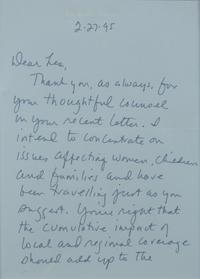 2-27-95
Dear Lea,
Thank you, as always, for
your thoughtful counsel
in your recent letter. I
intend to concentrate on
issues affecting women, children
and families and have
been travelling just as you
suggest. You're right that
the cumulative impact of
local and regional coverage
should add up to the